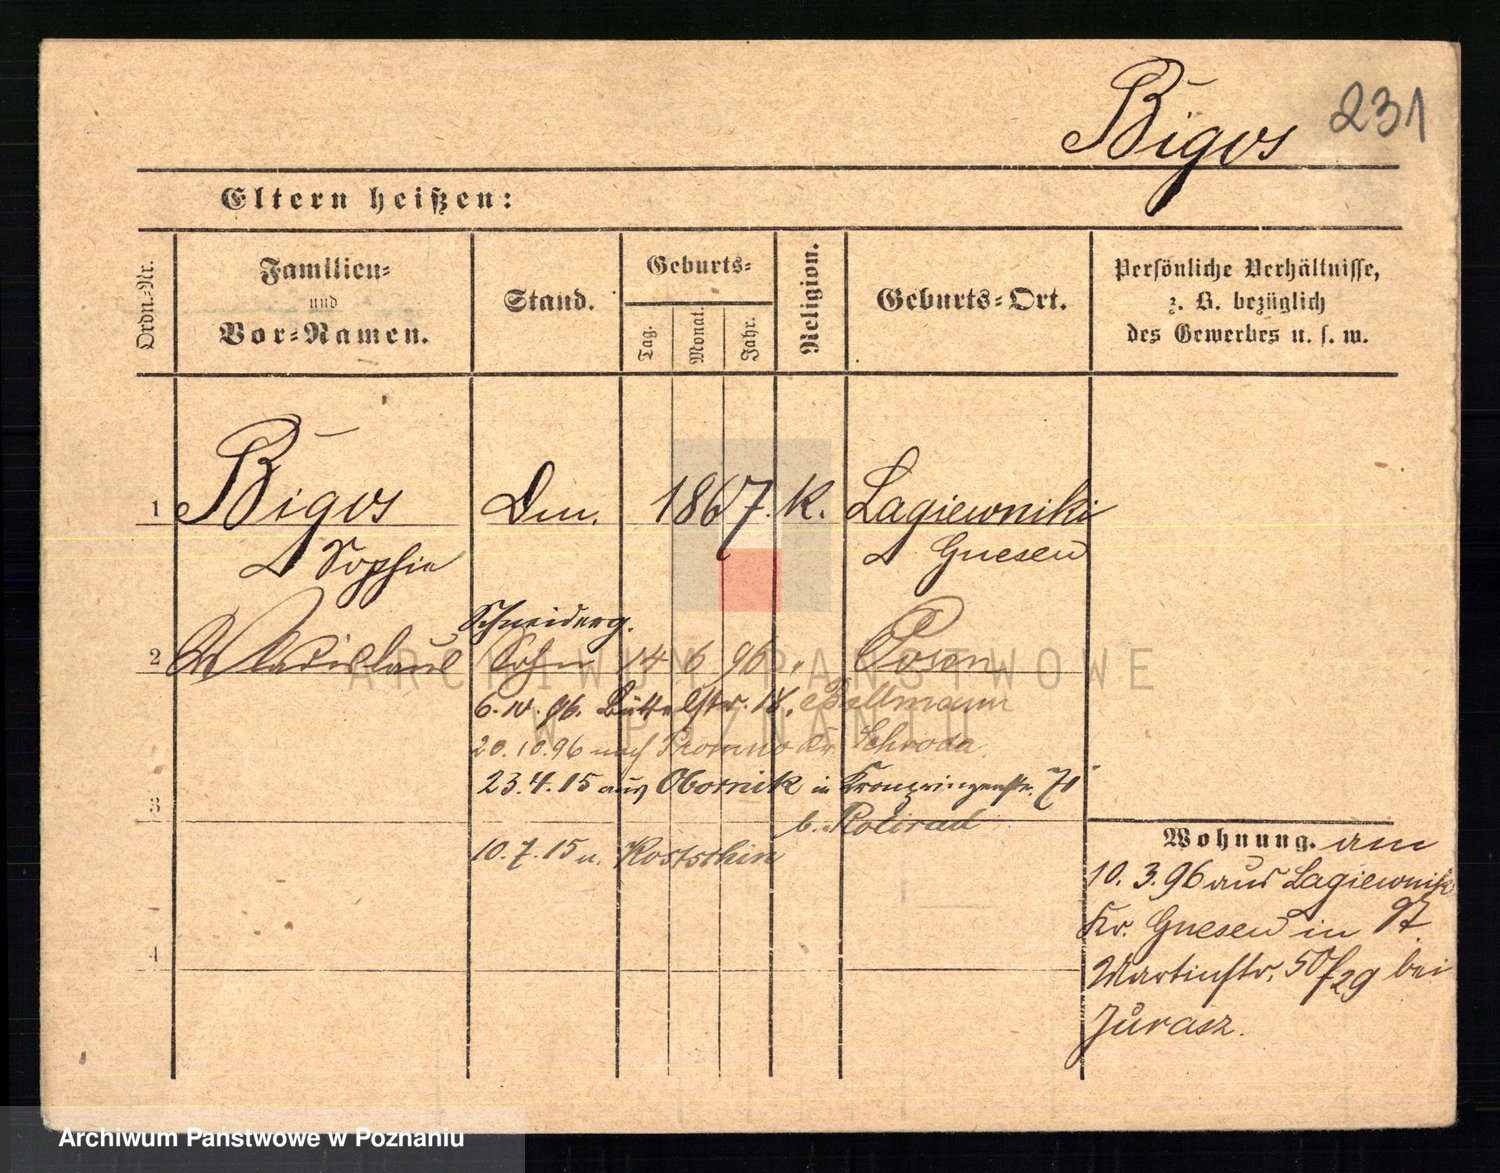 Bigos 231
Eltern heißen:
Ordn.-Nr.
Familien-
und
Vor-Namen.
Stand.
Geburts-
Tag.
Monat.
Jahr.
Religion.
Geburts-Ort.
Persönliche Verhältnisse,
z. B. bezüglich
des Gewerbes u. s. w.
1 Bigos Dm. 1867. k. Lagiewniki
Sophie Gnesen
Schneiderg.
2 Wladislaus Sohn 14 6 96. Posen
6. 10. 96. Büttelstr. 18, Bellmann
20.10.96 nach Kr. Schroda
23.4.15 aus Obornik in Kronprinzenstr. 71
3 b.
10.7.15 n. Kostschin
4
Wohnung. am
10. 3. 96 aus Lagiewniki
Kr. Gnesen in
Martinstr. 50/29 bei
Jurasz.
ARCHIWUM PAŃSTWOWE
W POZNANIU
Archiwum Państwowe w Poznaniu